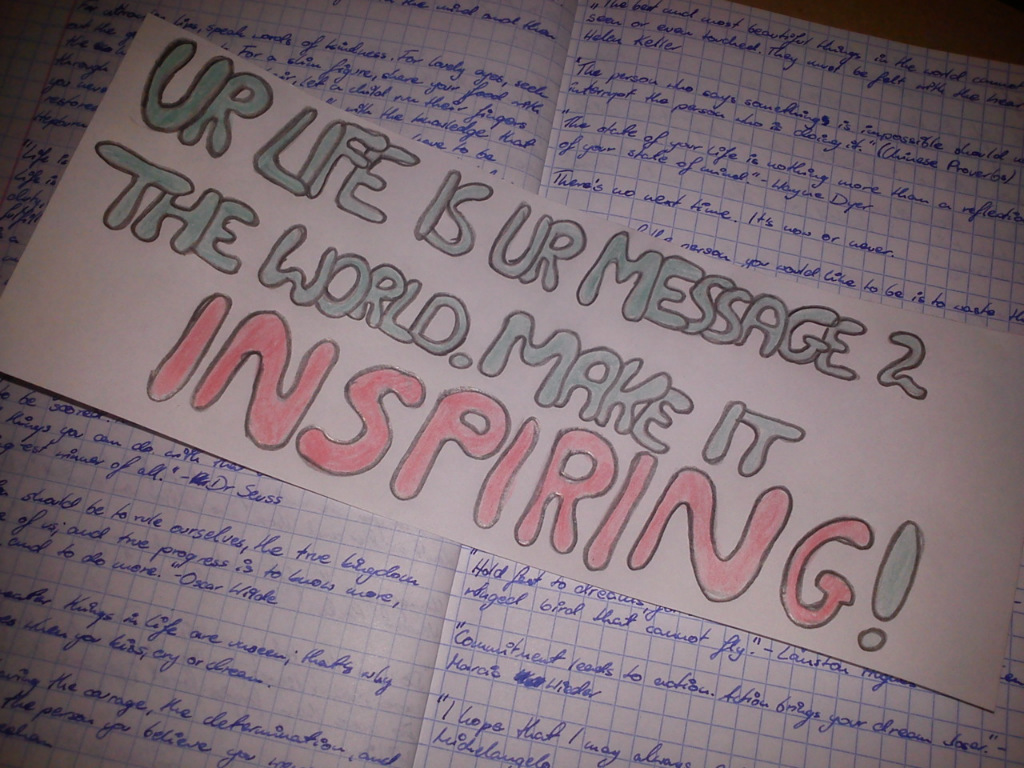 UR LIFE IS UR MESSAGE 2
THE WORLD. MAKE IT
INSPIRING!
in the mind and then
For attractive lips, speak words of kindness. For lovely eyes, seek
For a slim figure, share your food with
let a child run their fingers
with the knowledge that
have to be
"The best and most beautiful things in the world cannot
seen or even touched. They must be felt with the hear
Helen Keller
"The person who says something is impossible should
interrupt the person who is doing it." (Chinese Proverbs)
"The state of your life is nothing more than a reflection
of your state of mind." - Wayne Dyer
There's no next time. It's now or never.
person you would like to be is to waste
to be scored.
things you can do with
est winner of all." - Dr Seuss
should be to rule ourselves, the true kingdom
and true progress is to know more,
and to do more. "-Oscar Wilde
things in life are unseen; that's why
when you kiss, cry or dream.
the courage, the determination, and
the person you believe you
"Hold fast to dreams,
winged bird that cannot fly." - Lanston
"Commitment leads to action. Action brings your dream closer." -
Marcia Wieder
"I hope that I may always
Michelangelo